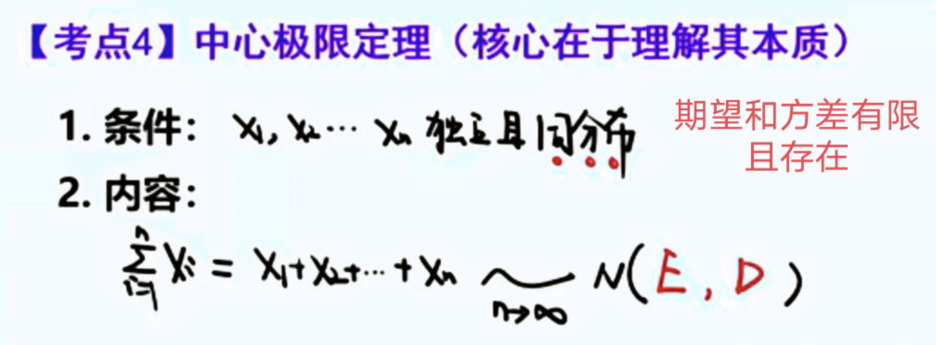 【考点4】中心极限定理（核心在于理解其本质）
1. 条件： X₁, X₂ ⋯ Xₙ 独立且同分布
期望和方差有限
且存在
2. 内容：
∑ᵢ₌₁ⁿ Xᵢ = X₁+X₂+⋯+Xₙ ~ N(E, D)
n→∞